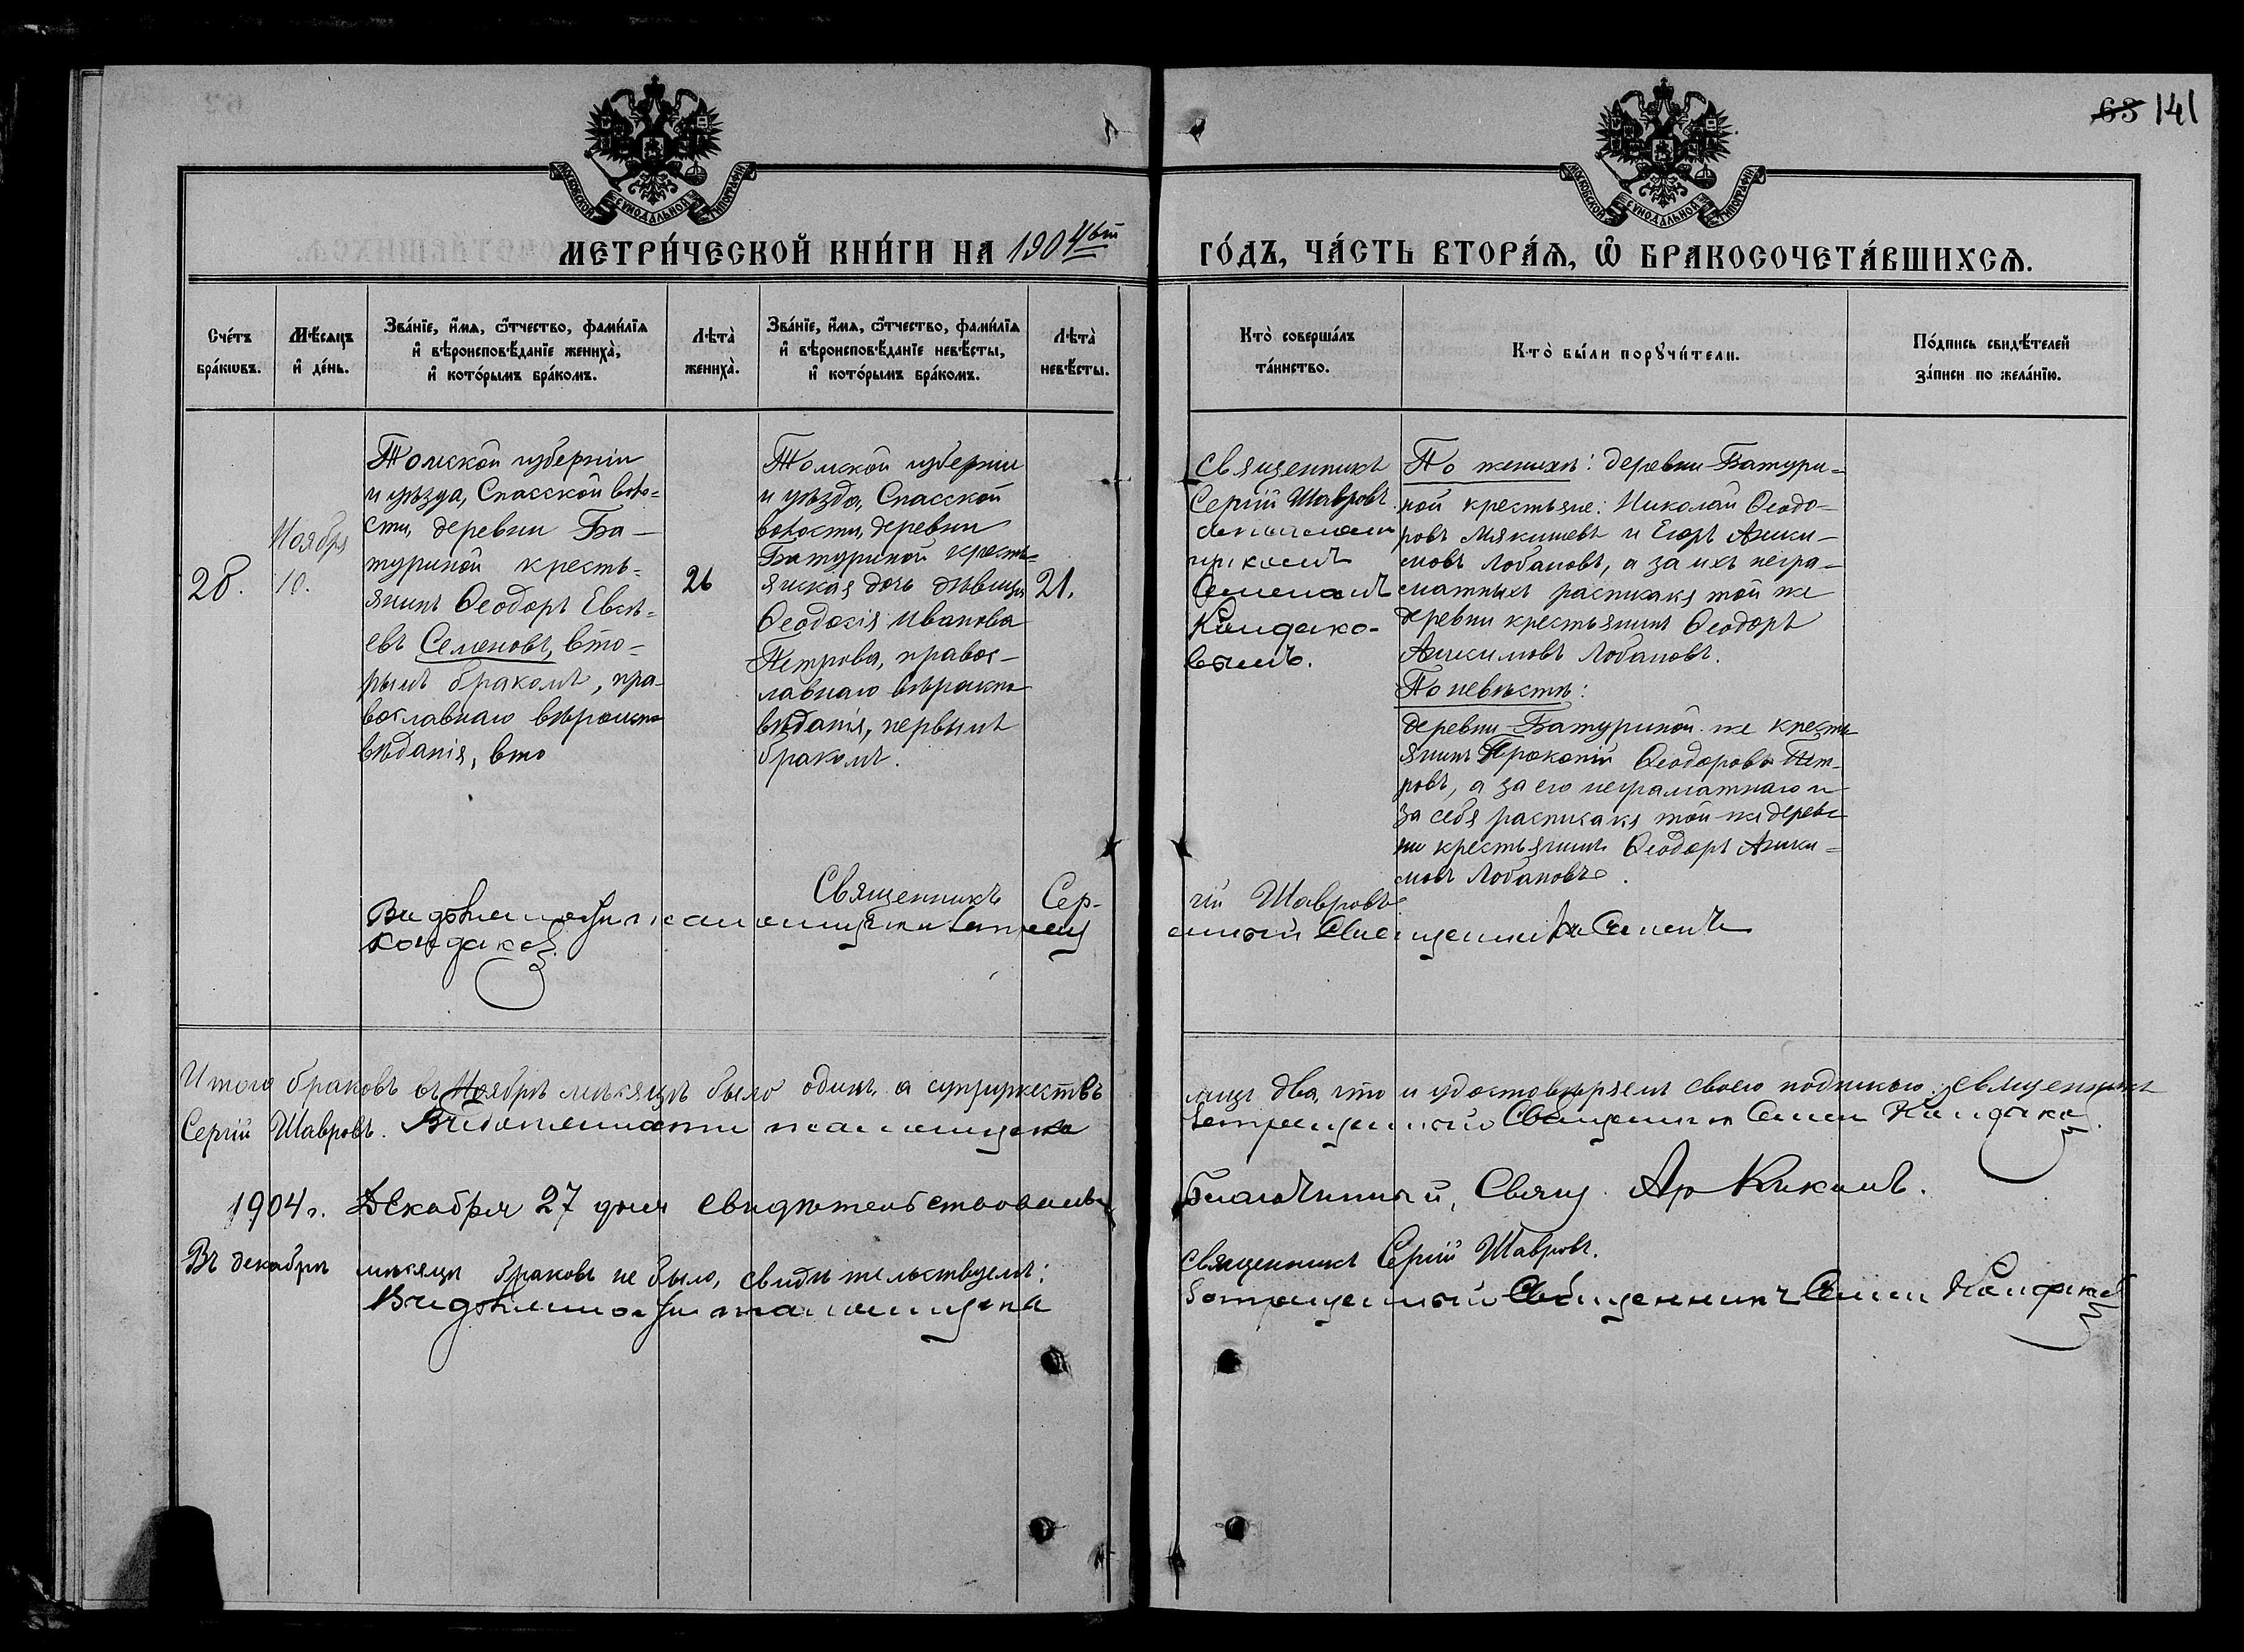 63 141
МОСКОВСКОЙ СΥНОДАЛЬНОЙ ТИПОГРАФІИ
МОСКОВСКОЙ СΥНОДАЛЬНОЙ ТИПОГРАФІИ
МЕТРИ́ЧЕСКОЙ КНИ́ГИ НА 1904ый
ГО́ДЪ, ЧА́СТЬ ВТОРА́Ѧ, Ѽ БРАКОСОЧЕТА́ВШИХСѦ.
Сче́тъ
бра́кѡвъ.
Мѣ́сяцъ
и҆ де́нь.
Зва́нїе, и҆́мѧ, ѻ҆́тчество, фами́лїѧ
и҆ вѣроисповѣ́данїе жениха̀,
и҆ кото́рымъ бра́комъ.
Лѣта̀
жениха̀.
Зва́нїе, и҆́мѧ, ѻ҆́тчество, фами́лїѧ
и҆ вѣроисповѣ́данїе невѣ́сты,
и҆ кото́рымъ бра́комъ.
Лѣта̀
невѣ́сты.
Кто̀ соверша́лъ
та́инство.
Кто̀ бы́ли порꙋчи́тели.
По́дпись свидѣ́телей
за́писи по жела́нїю.
28.
Ноября
10.
Томской губерніи
и уѣзда, Спасской воло-
сти, деревни Ба-
туриной кресть-
янинъ Ѳеодоръ Евсѣ-
евъ Семеновъ, вто-
рымъ бракомъ, пра-
вославнаго вѣроиспо
вѣданія, вто
26
Томской губерніи
и уѣзда, Спасской
волости, деревни
Батуриной кресть-
янская дочь дѣвица
Ѳеодосія Иванова
Петрова, правос-
лавнаго вѣроиспо
вѣданія, первымъ
бракомъ.
21.
Священникъ
Сергій Шавровъ
съ псаломщикомъ
Семеномъ
Кандако-
вымъ.
По женихѣ: деревни Батури-
ной крестьяне: Николай Ѳеодо-
ровъ Мякишевъ и Егоръ Аники-
мовъ Лобановъ, а за ихъ негра-
матныхъ расписался той же
деревни крестьянинъ Ѳеодоръ
Аникимовъ Лобановъ.
По невѣстѣ:
деревни Батуриной же кресть
янинъ Прокопій Ѳеодоровъ Пет-
ровъ, а за его неграматнаго и
за себя расписался той же дерев-
ни крестьянинъ Ѳеодоръ Аники-
мовъ Лобановъ.
Священникъ Сер-
гій Шавровъ
В и должности псаломщика Запрещенный Священникъ Семенъ
Кондаков
Итого браковъ въ Ноябрѣ мѣсяцѣ было одинъ, а супружествъ
лицъ два, что и удостовѣряемъ своею подписью: Священникъ
Сергій Шавровъ. В и должности псаломщика
Запрещенный Священник Семен Кандаков
1904 г. Декабря 27 дня свидѣтельствовалъ
Благочинный, Свящ. Ар Никаш
Въ декабрѣ мѣсяцѣ браковъ не было, свидѣтельствуемъ:
Священникъ Сергій Шавровъ.
В и должности псаломщика
Запрещенный Священникъ Семен Кандаков